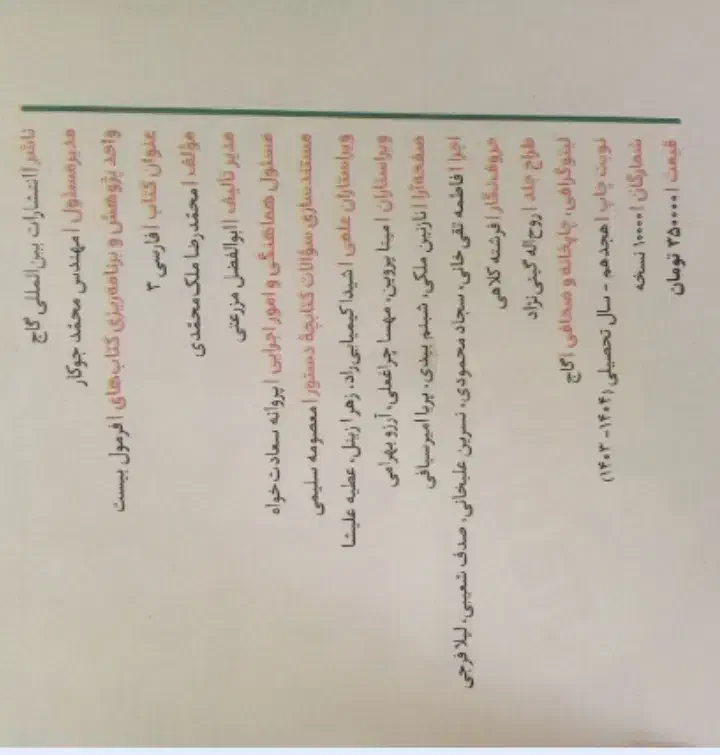 ناشر | انتشارات بین‌المللی گاج
مدیرمسئول | مهندس محمد جوکار
واحد پژوهش و برنامه‌ریزی کتاب‌های | فرمول بیست
عنوان کتاب | فارسی ۳
مؤلف | محمدرضا ملک‌محمدی
مدیر تألیف | ابوالفضل مزرعتی
مسئول هماهنگی و امور اجرایی | پروانه سعادت خواه
مستندسازی سؤالات کتابچهٔ دستور | معصومه سلیمی
ویراستاران علمی | شیدا کیمیایی‌راد، زهرا زینل، عطیه علیشا
ویراستاران | مینا پروین، مهسا چراغعلی، آرزو بهرامی
صفحه‌آرا | نازنین ملکی، شبنم بیدی، پریا امیرسیافی
اجرا | فاطمه تقی خانی، سجاد محمودی، نسرین علیخانی، صدف شعیبی، لیلا فرجی
حروف‌نگار | فرشته کلاهی
طراح جلد | روح‌اله گیتی‌نژاد
لیتوگرافی، چاپخانه و صحافی | گاج
نوبت چاپ | هجدهم - سال تحصیلی (۱۴۰۴-۱۴۰۳)
شمارگان | ۱۰۰۰۰ نسخه
قیمت | ۲۵۰۰۰۰ تومان